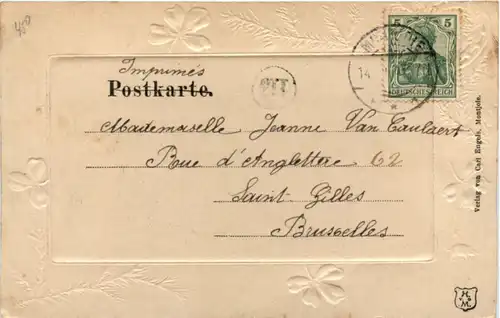 450
5 5
DEUTSCHES REICH
14
Imprimés
Postkarte.
Mademoiselle Jeanne Van Caulaert
Rue d'Anglettere 62
Saint-Gilles
Bruxelles
Verlag von Carl Engels, Montjoie.
H. & M.